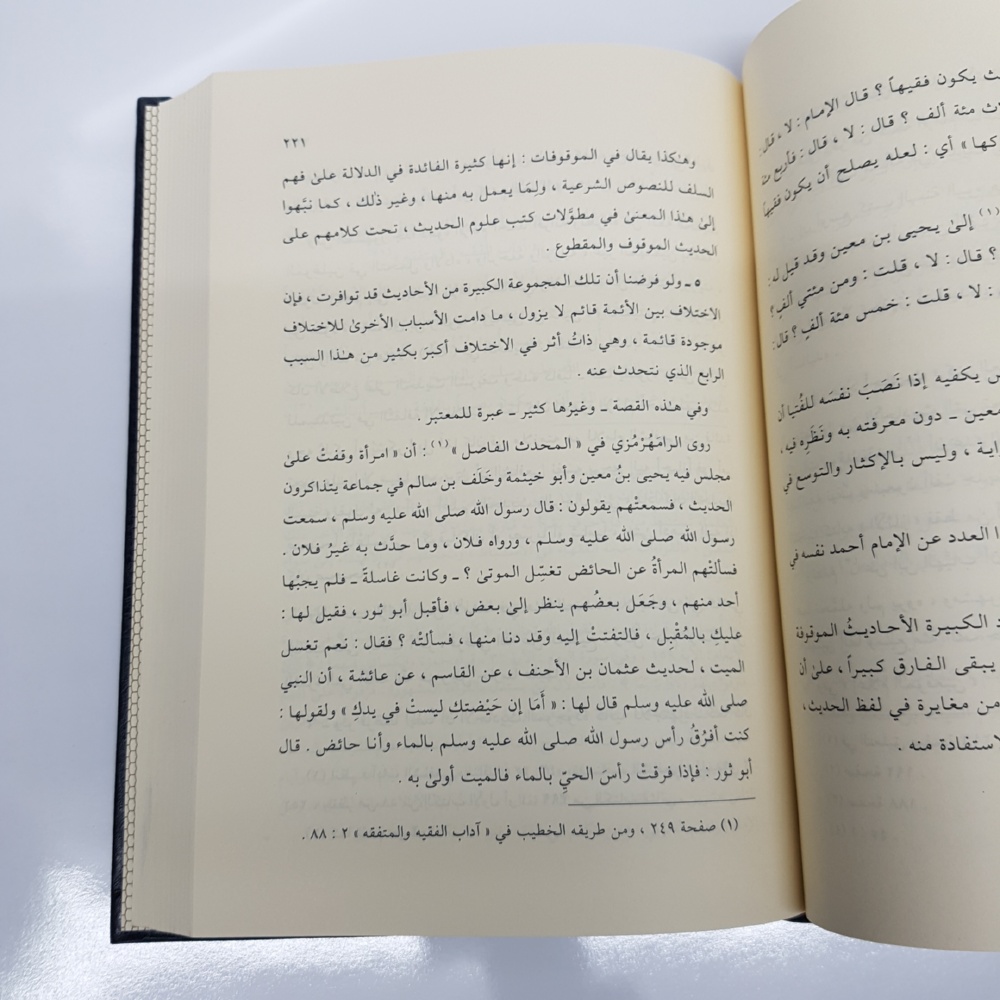 ث يكون فقيهاً ؟ قال الإمام : لا ، قال :
لاث مئة ألف ؟ قال : لا ، قال : فأربع مئة
كها » أي : لعله يصلح أن يكون فقيهاً
(١) إلىٰ يحيى بن معين وقد قيل له :
؟ قال : لا ، قلت : ومن مئتي ألفٍ ؟
: لا ، قلت : خمس مئة ألفٍ ؟ قال :
س يكفيه إذا نَصَبَ نفسَه للفُتيا أن
معين ـ دون معرفته به ونَظَرِه فيه ،
راية ، وليس بالإكثار والتوسع في
ا العدد عن الإمام أحمد نفسه في
د الكبيرة الأحاديثُ الموقوفة
يبقى الفارق كبيراً ، علىٰ أن
من مغايرة في لفظ الحديث ،
لاستفادة منه .
٢٢١
وهٰكذا يقال في الموقوفات : إنها كثيرة الفائدة في الدلالة علىٰ فهم
السلف للنصوص الشرعية ، ولِمَا يعمل به منها ، وغير ذٰلك ، كما نبَّهوا
إلىٰ هٰذا المعنىٰ في مطوَّلات كتب علوم الحديث ، تحت كلامهم على
الحديث الموقوف والمقطوع .
٥ ـ ولو فرضنا أن تلك المجموعة الكبيرة من الأحاديث قد توافرت ، فإن
الاختلاف بين الأئمة قائم لا يزول ، ما دامت الأسباب الأخرىٰ للاختلاف
موجودة قائمة ، وهي ذاتُ أثر في الاختلاف أكبرَ بكثير من هٰذا السبب
الرابع الذي نتحدث عنه .
وفي هٰذه القصة ـ وغيرُها كثير ـ عبرة للمعتبر .
روى الرامَهُرْمُزي في « المحدث الفاصل »(١) : أن « امرأة وقفتْ علىٰ
مجلس فيه يحيى بنُ معين وأبو خيثمة وخَلَف بن سالم في جماعة يتذاكرون
الحديث ، فسمعتْهم يقولون : قال رسول الله صلى الله عليه وسلم ، سمعت
رسول الله صلى الله عليه وسلم ، ورواه فلان ، وما حدَّث به غيرُ فلان .
فسألتْهم المرأةُ عن الحائض تغسِّل الموتىٰ ؟ ـ وكانت غاسلةً ـ فلم يجبْها
أحد منهم ، وجَعَل بعضُهم ينظر إلىٰ بعض ، فأقبل أبو ثور ، فقيل لها :
عليكِ بالمُقْبِل ، فالتفتتْ إليه وقد دنا منها ، فسألتْه ؟ فقال : نعم تغسل
الميت ، لحديث عثمان بن الأحنف ، عن القاسم ، عن عائشة ، أن النبي
صلى الله عليه وسلم قال لها : « أَمَا إن حَيْضتكِ ليستْ في يدكِ » ولقولها :
كنت أفرُقُ رأس رسول الله صلى الله عليه وسلم بالماء وأنا حائض . قال
أبو ثور : فإذا فرقتْ رأسَ الحيِّ بالماء فالميت أولىٰ به .
(١) صفحة ٢٤٩ ، ومن طريقه الخطيب في « آداب الفقيه والمتفقه » ٢ : ٨٨ .